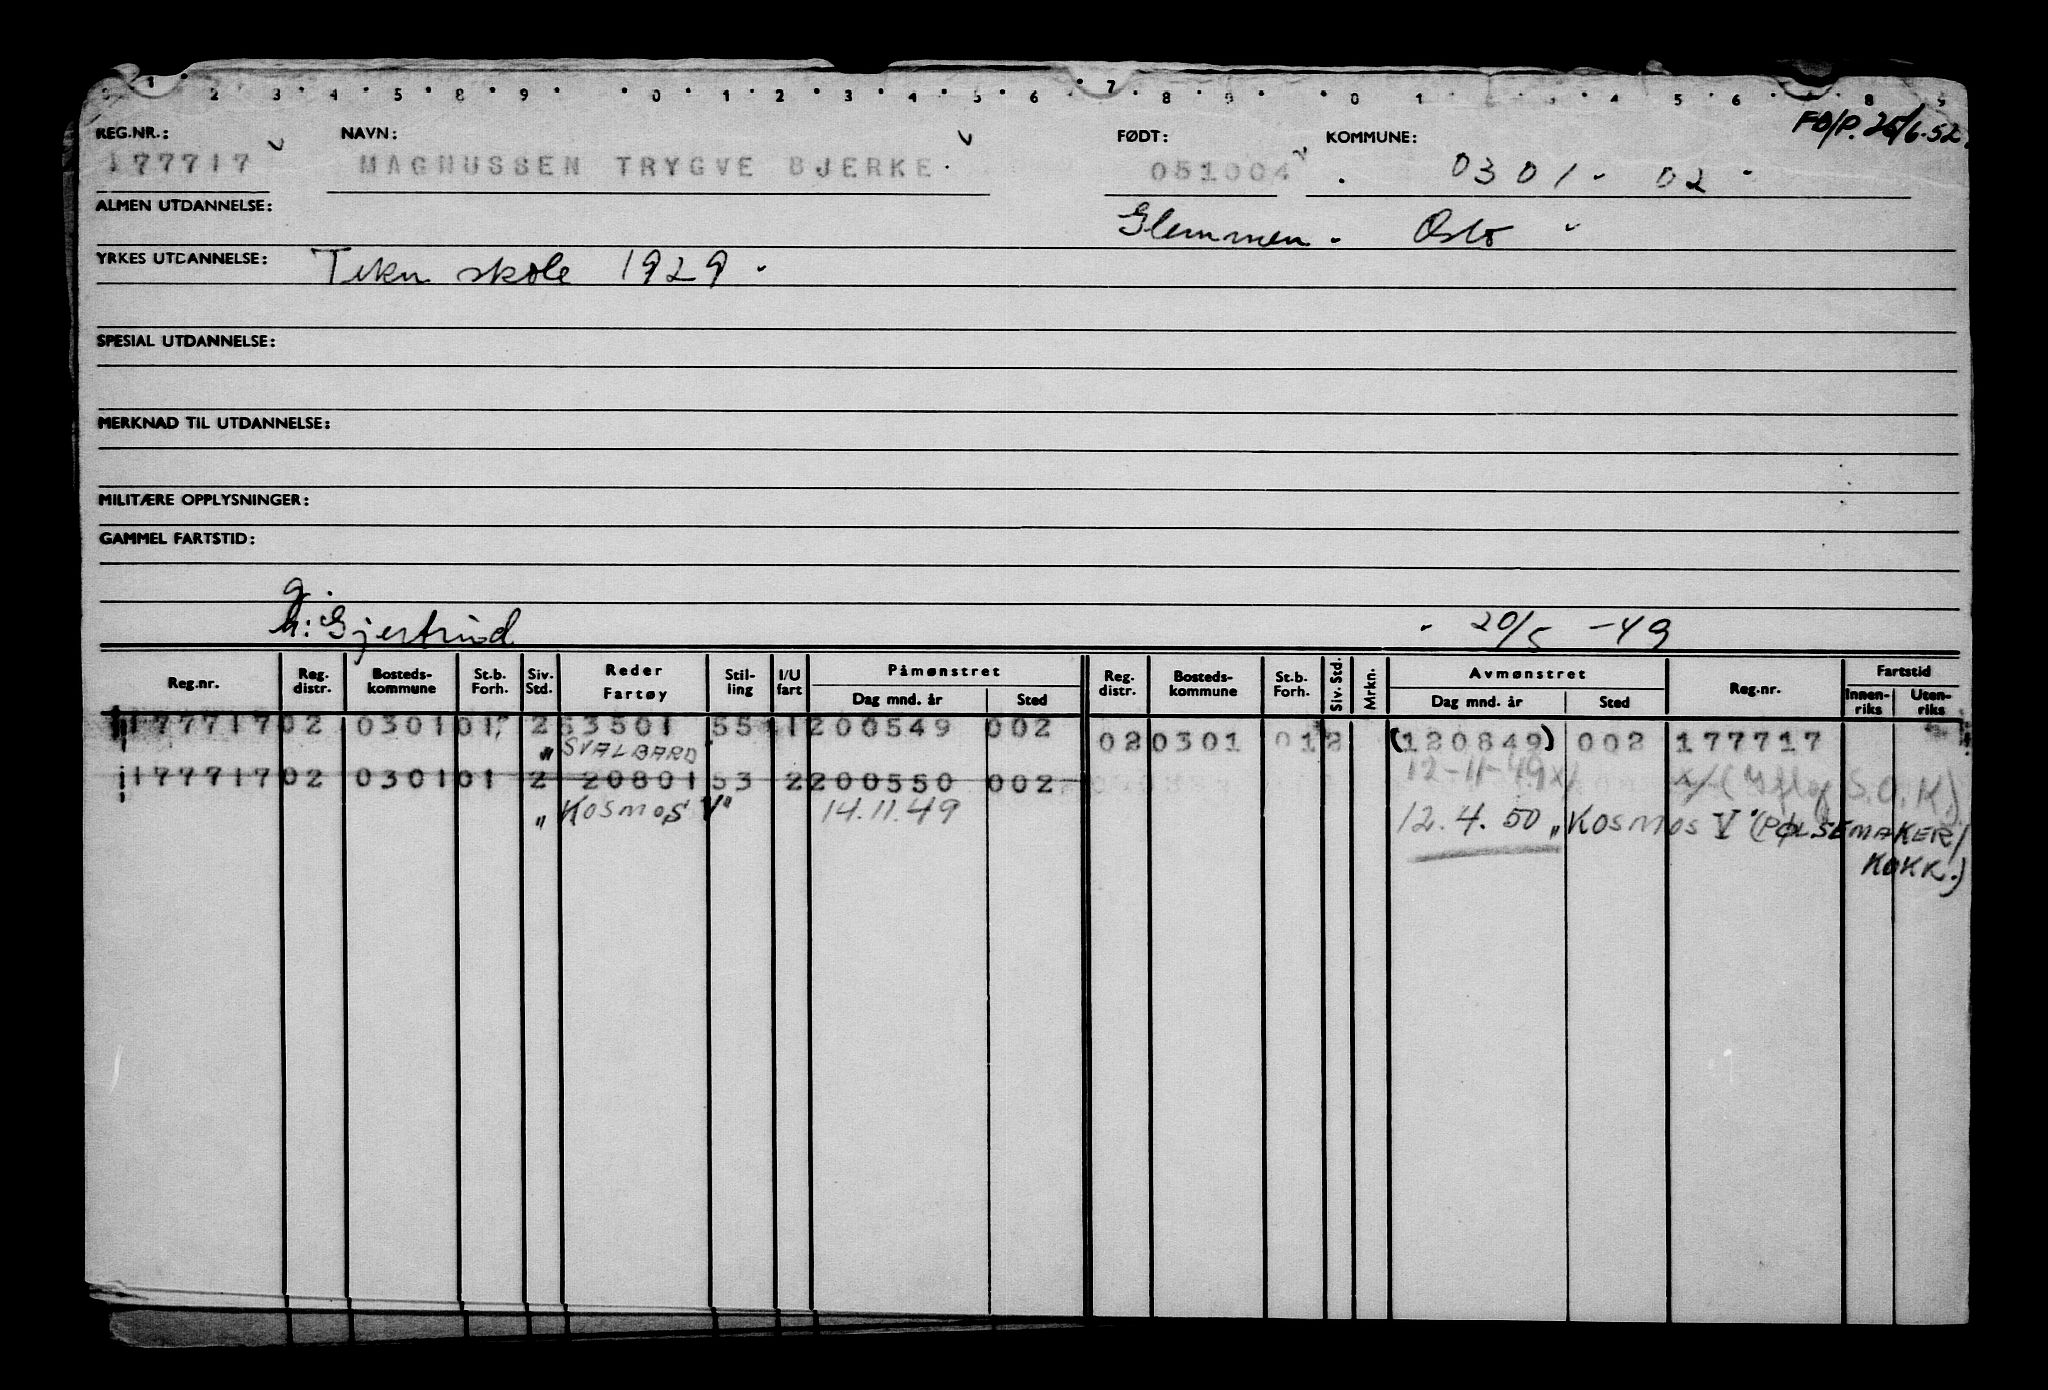 1 2 3 4 5 8 9 0 1 2 3 4 5 6 7 8 9 0 1 4 5 6 8 9
REG.NR.: NAVN: FØDT: KOMMUNE: FØ/P. 25/6-52.
177717 MAGNUSSEN TRYGVE BJERKE 051004 0301 - 02
ALMEN UTDANNELSE: Glemmen. Oslo
YRKES UTDANNELSE: Tekn skole 1929.
SPESIAL UTDANNELSE:
MERKNAD TIL UTDANNELSE:
MILITÆRE OPPLYSNINGER:
GAMMEL FARTSTID:
g.
h: Gjertrud - 20/5 -49
Reg.nr. Reg. distr. Bosteds-kommune St.b. Forh. Siv. Std. Reder Fartøy Stil-ling I/U fart Påmønstret Dag mnd. år Sted Reg. distr. Bosteds-kommune St.b. Forh. Siv. Std. Mrkn. Avmønstret Dag mnd. år Sted Reg.nr. Fartstid Innen-riks Uten-riks
177717 02 0301 01 2 63501 55 1 200549 002
"SVALBARD" 02 0301 01 2 (120849) 002 177717
177717 02 0301 01 2 20801 53 2 200550 002 12-11-49x/ x/( S.O.K)
"KOSMOS V" 14.11.49 12.4.50 "KOSMOS V" (PØLSEMAKER/
KOKK.)